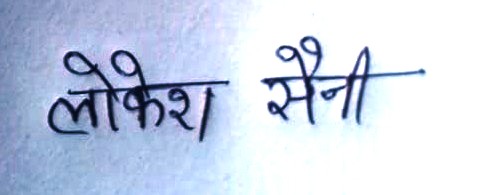 लोकेश सैनी